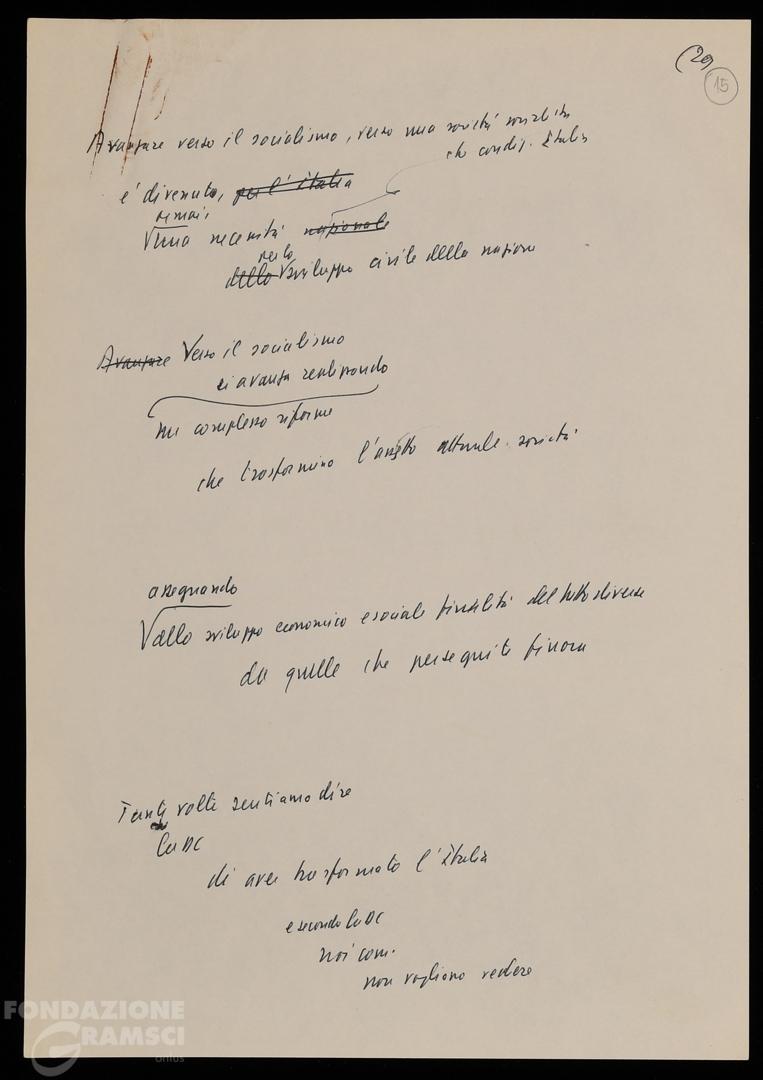 (29
15
Avanzare verso il socialismo, verso una società socialista
che condiz. Italia
e' divenuto, per l'Italia
ormai
una necessità nazionale
per lo
dello sviluppo civile della nazione
Avanzare Verso il socialismo
si avanza realizzando
un complesso riforme
che trasformino l'assetto attuale società
assegnando
allo sviluppo economico e sociale finalità del tutto diverse
da quelle che perseguite finora
Tante volte sentiamo dire
la DC
di aver trasformato l'Italia
e secondo la DC
noi com.
non vogliamo vedere
FONDAZIONE
GRAMSCI
onlus